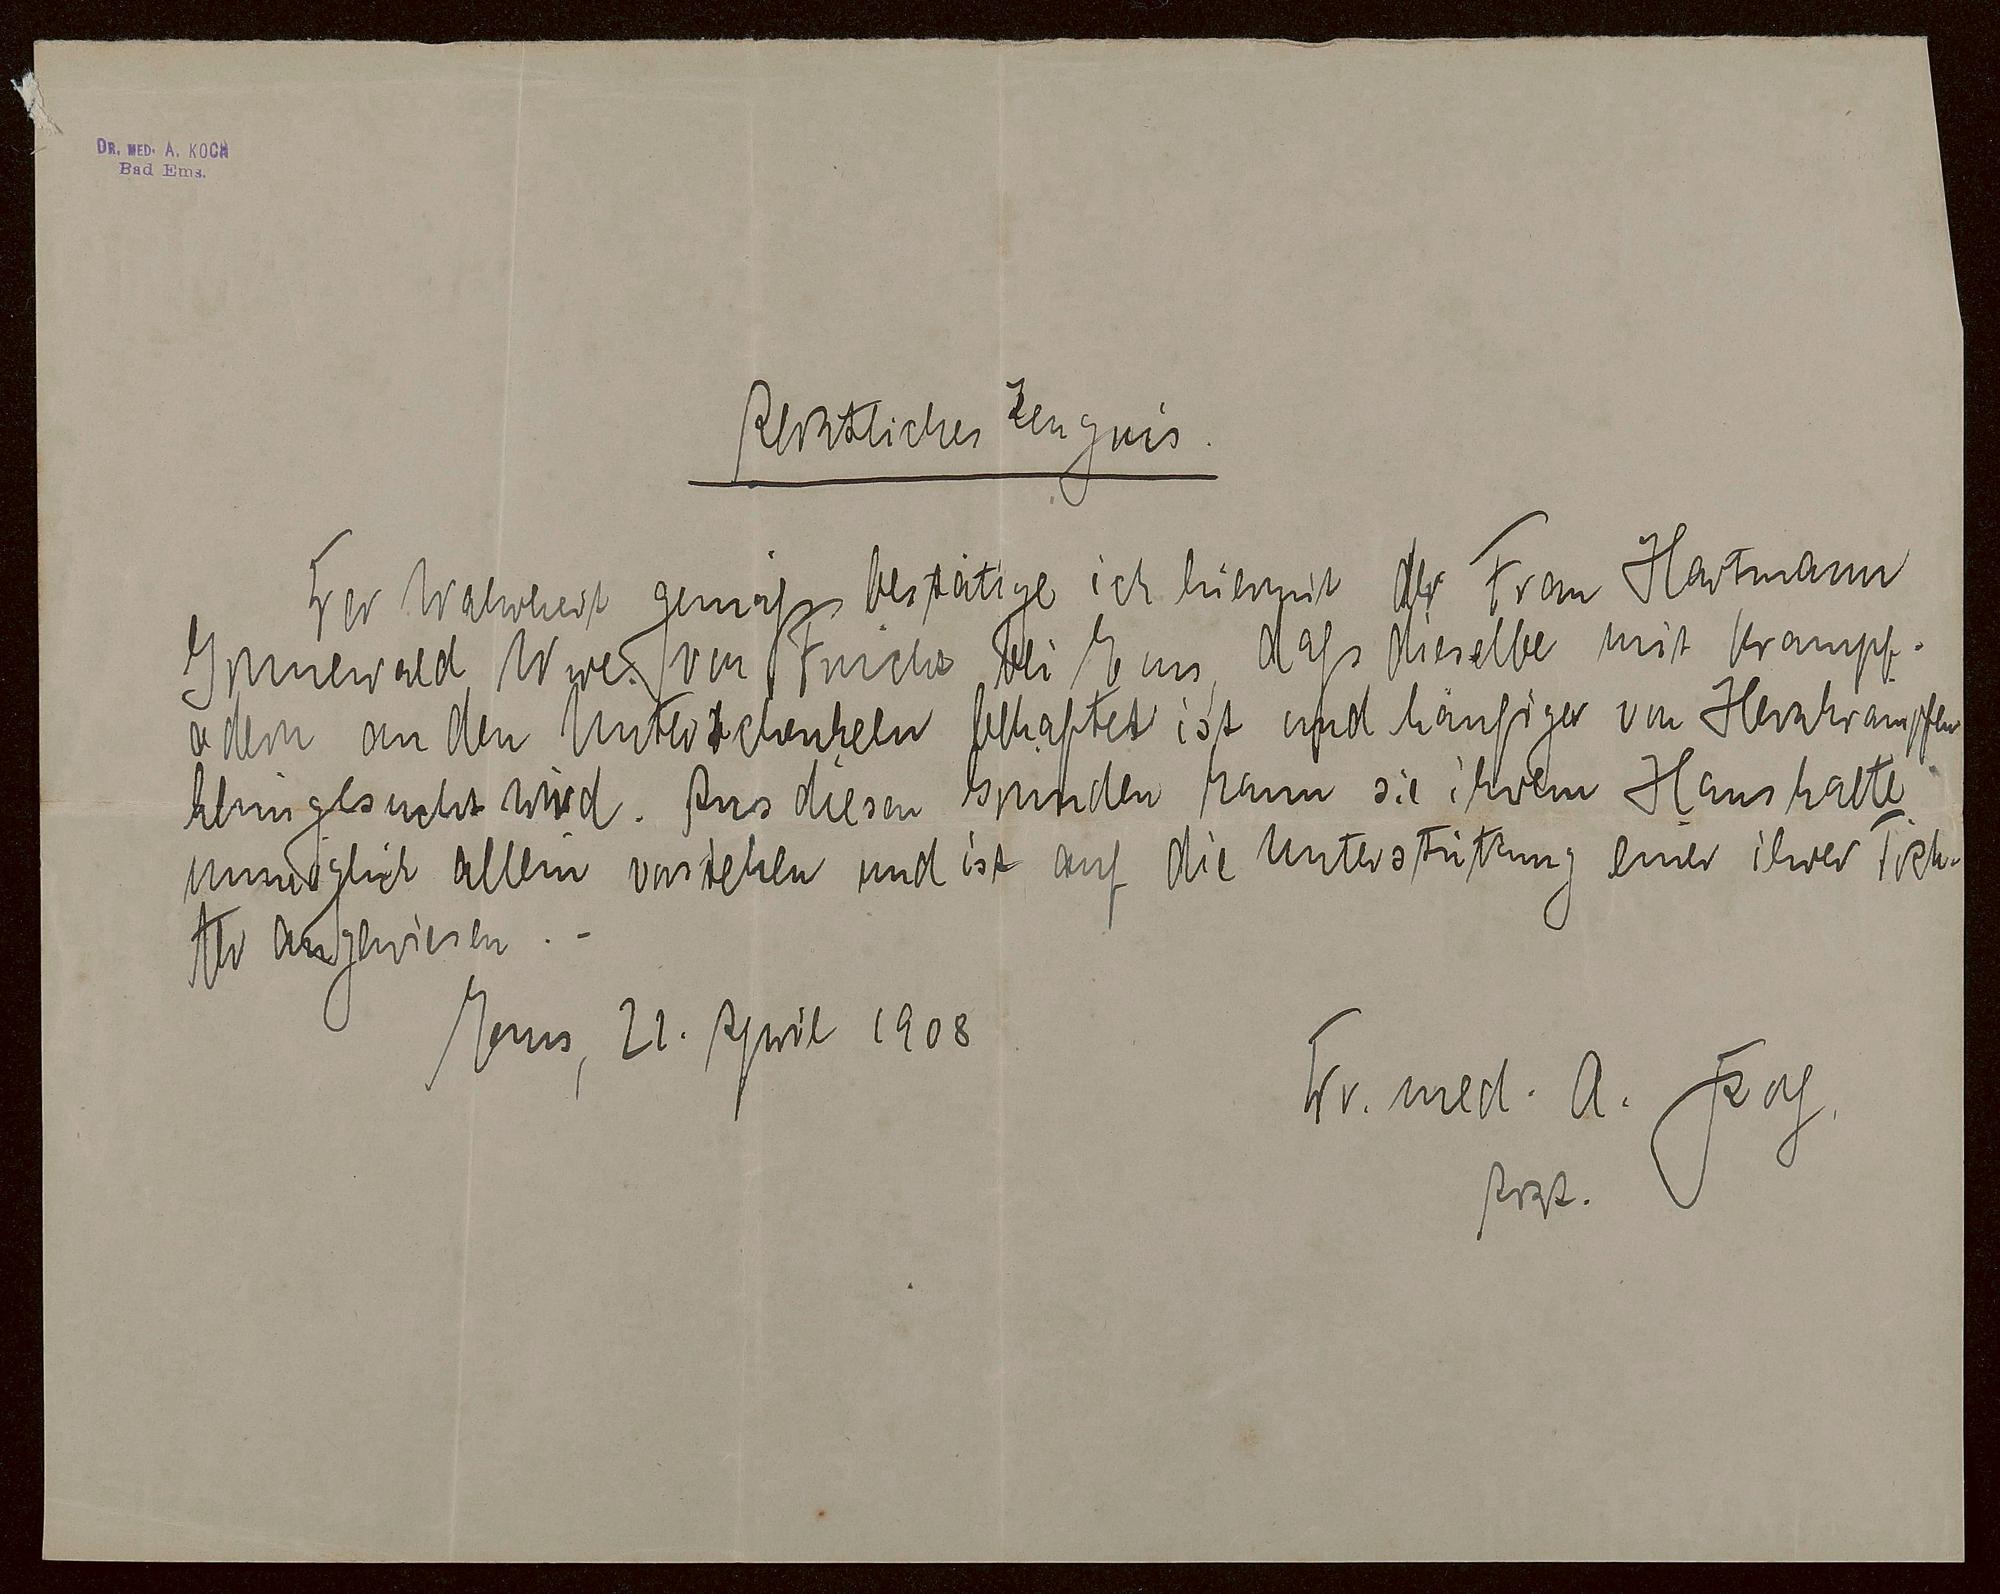 DR. MED. A. KOCH
Bad Ems.
Aerztliches Zeugnis.
Der Wahrheit gemäß bestätige ich hiermit der Frau Hartmann
Grunewald Wwe. von Frücht bei Ems, daß dieselbe mit Krampf-
adern an den Unterschenkeln behaftet ist und häufiger von Herzkrämpfen
heimgesucht wird. Aus diesen Gründen kann sie ihrem Haushalte
unmöglich allein vorstehen und ist auf die Unterstützung einer ihrer Töch-
ter angewiesen. -
Ems, 21. April 1908
Dr. med. A. Koch.
Arzt.